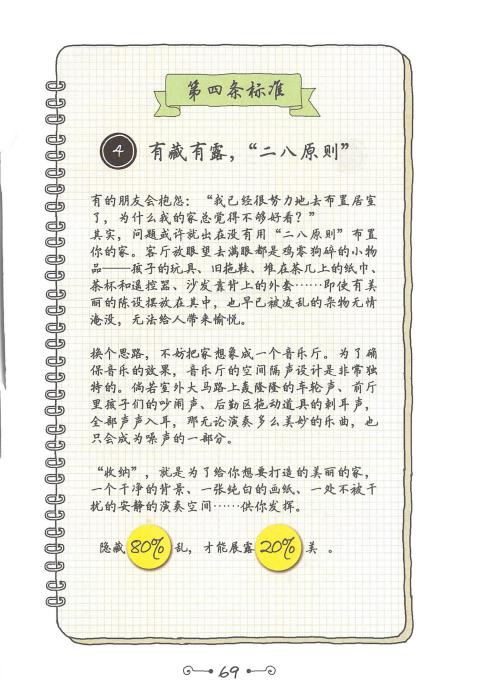 第四条标准
4 有藏有露，“二八原则”
有的朋友会抱怨：“我已经很努力地去布置居室
了，为什么我的家总觉得不够好看？”
其实，问题或许就出在没有用“二八原则”布置
你的家。客厅放眼望去满眼都是鸡零狗碎的小物
品——孩子的玩具、旧拖鞋、堆在茶几上的纸巾、
茶杯和遥控器、沙发靠背上的外套……即使有美
丽的陈设摆放在其中，也早已被凌乱的杂物无情
淹没，无法给人带来愉悦。
换个思路，不妨把家想象成一个音乐厅。为了确
保音乐的效果，音乐厅的空间隔声设计是非常独
特的。倘若室外大马路上轰隆隆的车轮声、前厅
里孩子们的吵闹声、后勤区拖动道具的刺耳声，
全部声声入耳，那无论演奏多么美妙的乐曲，也
只会成为噪声的一部分。
“收纳”，就是为了给你想要打造的美丽的家，
一个干净的背景、一张纯白的画纸、一处不被干
扰的安静的演奏空间……供你发挥。
隐藏80%乱，才能展露20%美。
69